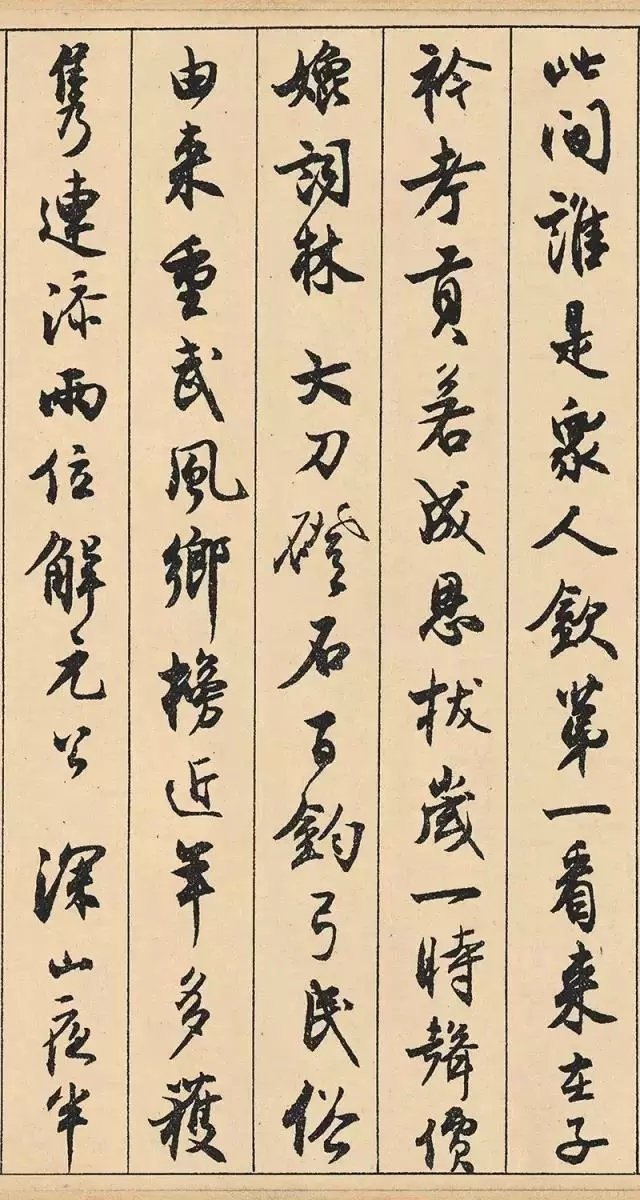 此间誰是衆人欽第一看来在子
衿考貢若成恩拔歲一時聲價
媲詞林 大刀磴石百鈞弓民俗
由来重武風鄉榜近年多穫
隽連添兩位解元公 深山夜半